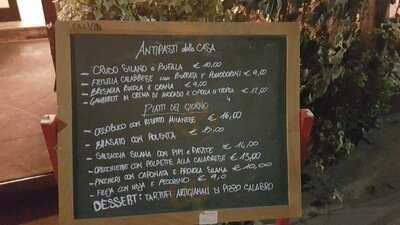 ANTIPASTI della CASA
- CRUDO SILANO e BUFALA € 10,00
- FRITELLA CALABRESE con BURRATA e POMODORINI € 9,00
- BRESAOLA RUCOLA e GRANA € 9,00
- GAMBERETTI IN CREMA DI AVOCADO e CIPOLLA DI TROPEA € 12,00
PIATTI DEL GIORNO
- OSSOBUCO con RISOTTO MILANESE € 16,00
- BRASATO con POLENTA € 15,00
- SALSICCIA SILANA con PIPI e PATATE € 14,00
- ORECCHIETTE con POLPETTE ALLA CALABRESE € 13,00
- PACCHERI con CAPONATA e PROVOLA SILANA € 10,00
- FILEJA con NDUJA e PECORINO € 9,0
DESSERT: TARTUFI ARTIGIANALI DI PIZZO CALABRO